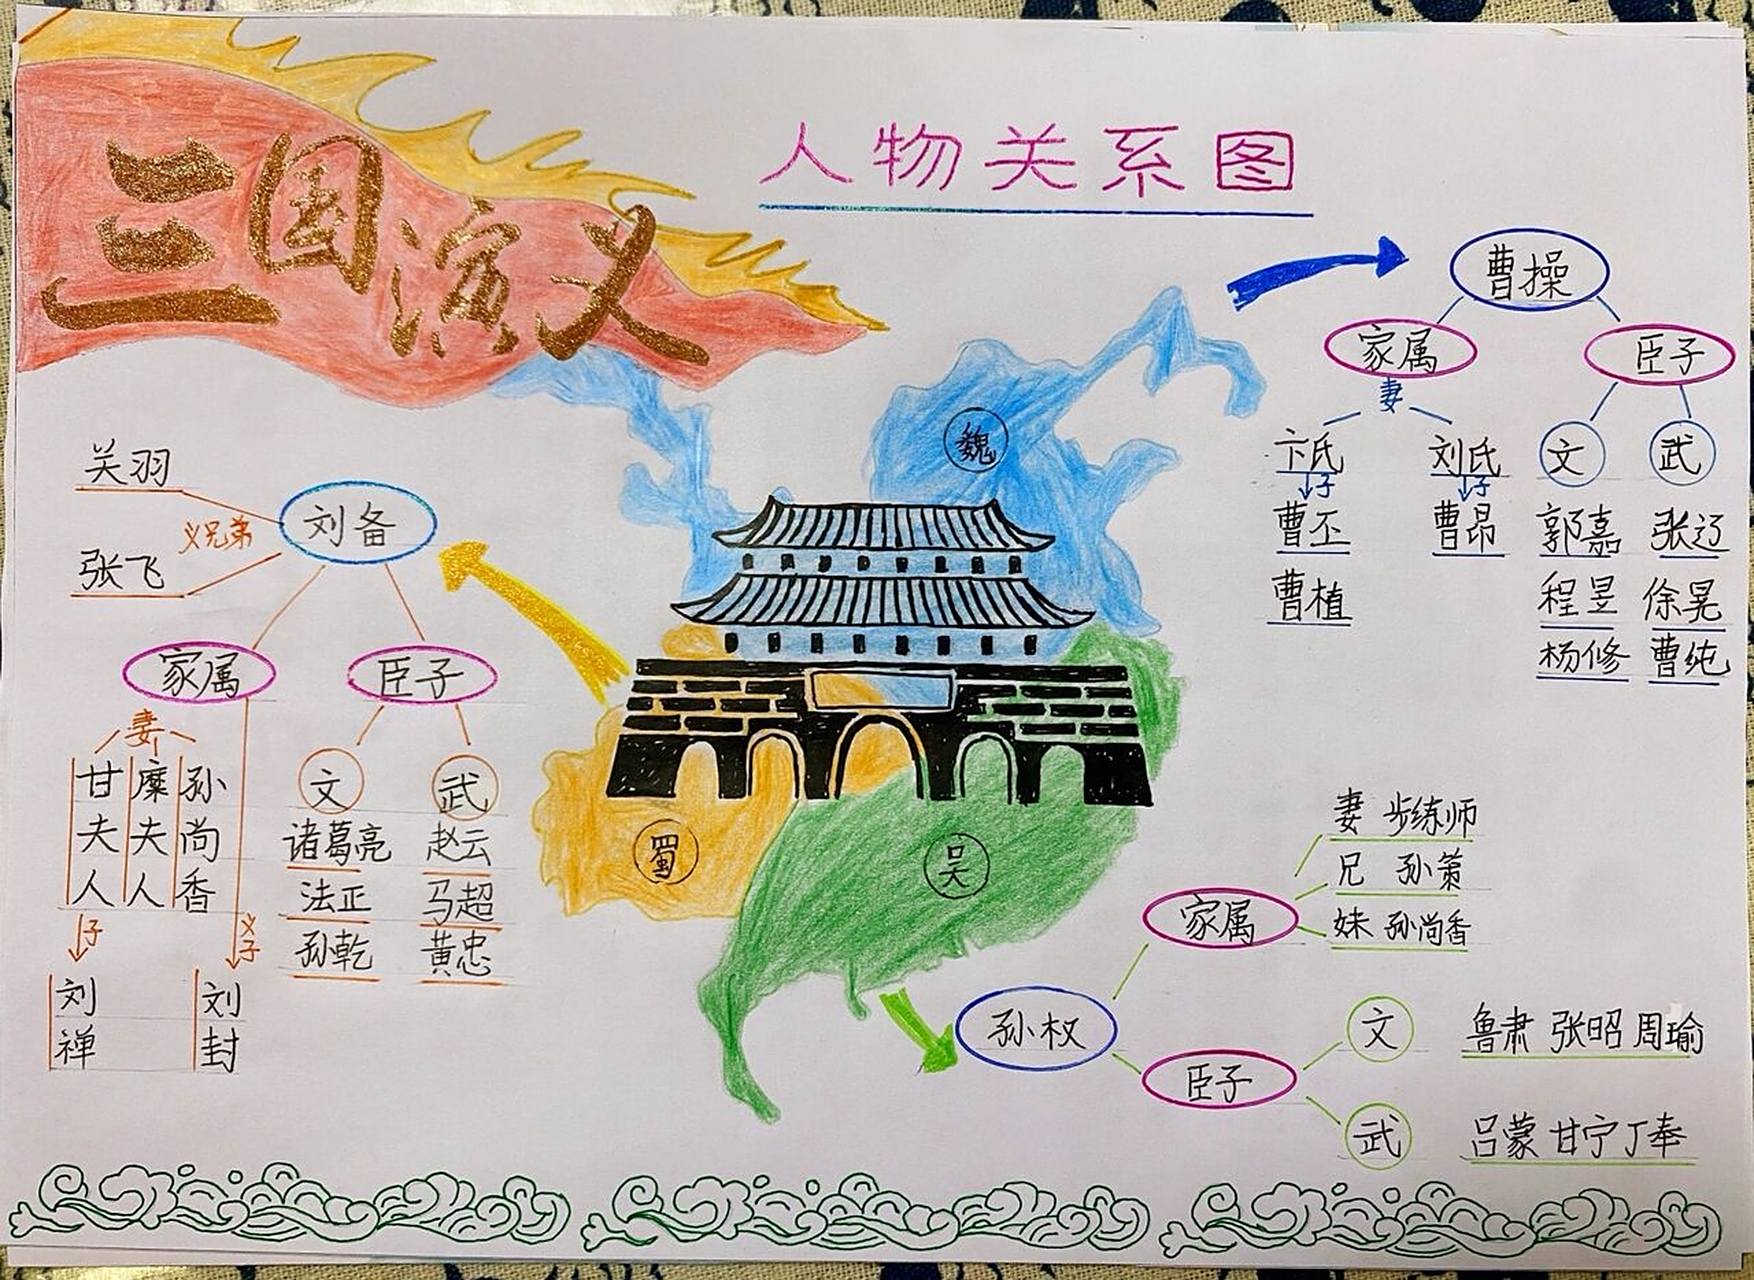 三国演义
人物关系图
曹操
家属
臣子
妻
卞氏
刘氏
文
武
子
子
曹丕
曹昂
郭嘉
张辽
曹植
程昱
徐晃
杨修
曹纯
魏
关羽
刘备
义兄弟
张飞
家属
臣子
妻
甘夫人
糜夫人
孙尚香
文
武
诸葛亮
赵云
法正
马超
孙乾
黄忠
子
义子
刘禅
刘封
蜀
吴
妻 步练师
兄 孙策
家属
妹 孙尚香
孙权
文
鲁肃 张昭 周瑜
臣子
武
吕蒙 甘宁 丁奉